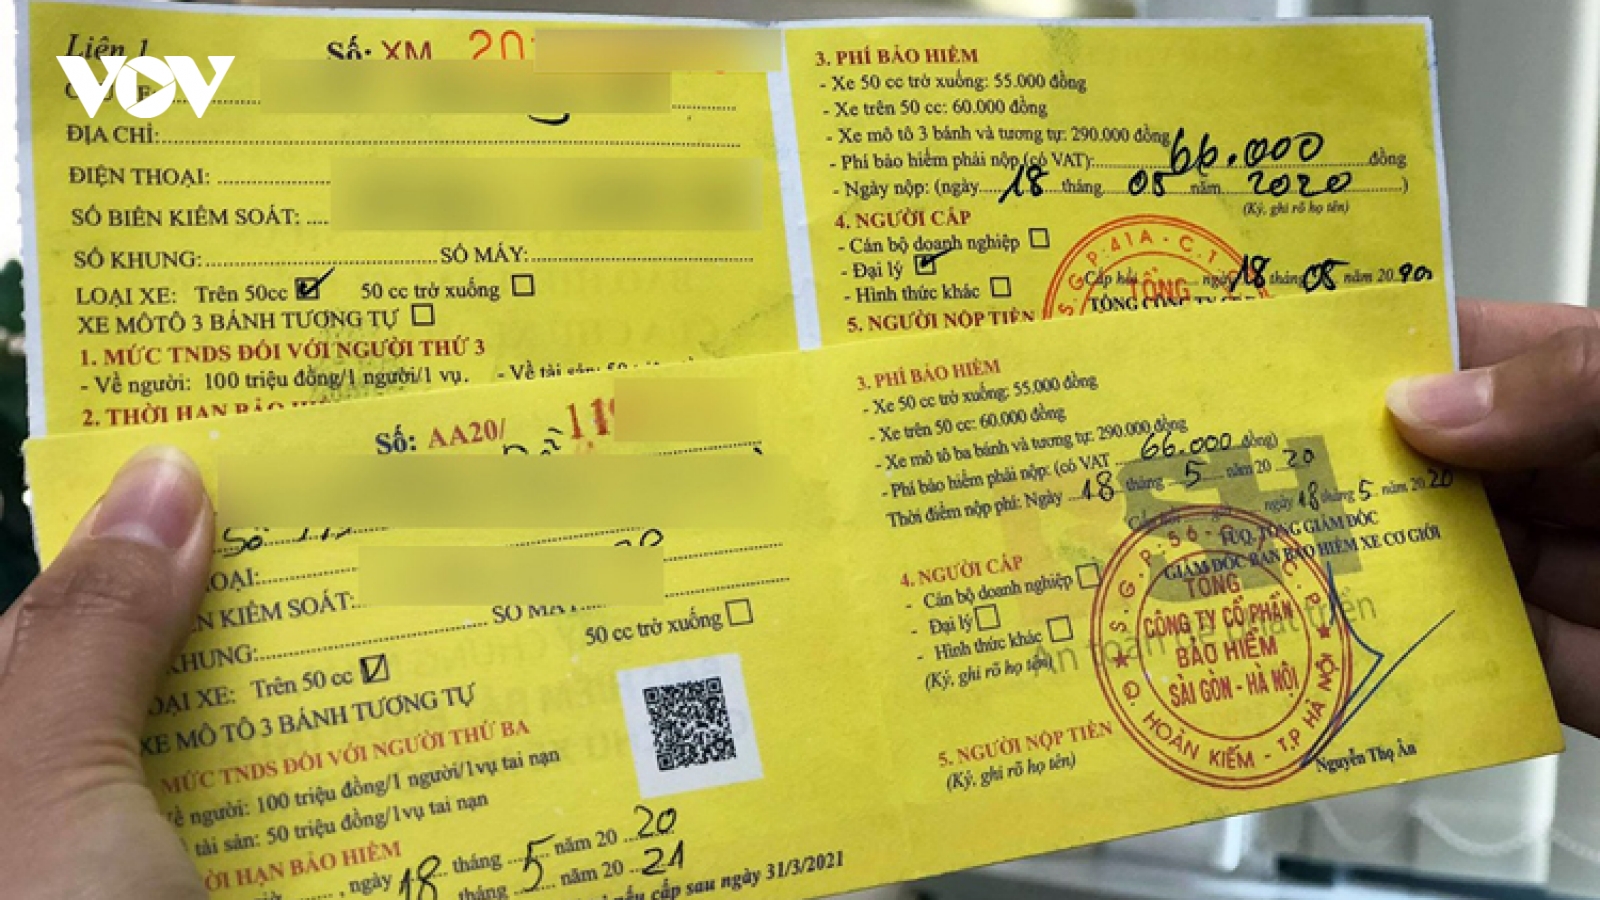 Liên 1
VOV
Số: XM 20
ĐỊA CHỈ:
ĐIỆN THOẠI:
SỐ BIỂN KIỂM SOÁT:
SỐ KHUNG: SỐ MÁY:
LOẠI XE: Trên 50cc 50 cc trở xuống
XE MÔTÔ 3 BÁNH TƯƠNG TỰ
1. MỨC TNDS ĐỐI VỚI NGƯỜI THỨ 3
- Về người: 100 triệu đồng/1 người/1 vụ. - Về tài sản: 50
2. THỜI HẠN BẢO
3. PHÍ BẢO HIỂM
- Xe 50 cc trở xuống: 55.000 đồng
- Xe trên 50 cc: 60.000 đồng
- Xe mô tô 3 bánh và tương tự: 290.000 đồng
- Phí bảo hiểm phải nộp (có VAT): 66.000 đồng
- Ngày nộp: (ngày 18 tháng 05 năm 2020)
(Ký, ghi rõ họ tên)
4. NGƯỜI CẤP
- Cán bộ doanh nghiệp
- Đại lý
- Hình thức khác
Cấp hồi ngày 18 tháng 05 năm 2020
S.G.P:41A-C.T
TỔNG
TỔNG CÔNG TY
5. NGƯỜI NỘP TIỀN
Số: AA20/ 11
OẠI:
N KIỂM SOÁT:
KHUNG: SỐ MÁY
OẠI XE: Trên 50 cc 50 cc trở xuống
XE MÔ TÔ 3 BÁNH TƯƠNG TỰ
MỨC TNDS ĐỐI VỚI NGƯỜI THỨ BA
ề người: 100 triệu đồng/1 người/1vụ tai nạn
tài sản: 50 triệu đồng/1vụ tai nạn
ỜI HẠN BẢO HIỂM
, ngày 18 tháng 5 năm 2020
tháng năm 2021
nếu cấp sau ngày 31/3/2021
3. PHÍ BẢO HIỂM
- Xe 50 cc trở xuống: 55.000 đồng
- Xe trên 50 cc: 60.000 đồng
- Xe mô tô ba bánh và tương tự: 290.000 đồng
- Phí bảo hiểm phải nộp: (có VAT 66.000 đồng)
Thời điểm nộp phí: Ngày 18 tháng 5 năm 2020
ngày 18 tháng 5 năm 2020
TUQ. TỔNG GIÁM ĐỐC
GIÁM ĐỐC BAN BẢO HIỂM XE CƠ GIỚI
4. NGƯỜI CẤP
- Cán bộ doanh nghiệp
- Đại lý
- Hình thức khác
(Ký, ghi rõ họ tên)
BSH
An toàn để phát triển
S.G.P:56
TỔNG
CÔNG TY CỔ PHẦN
BẢO HIỂM
SÀI GÒN - HÀ NỘI
Q. HOÀN KIẾM - T.P HÀ NỘI
5. NGƯỜI NỘP TIỀN
(Ký, ghi rõ họ tên)
Nguyễn Thọ Ân